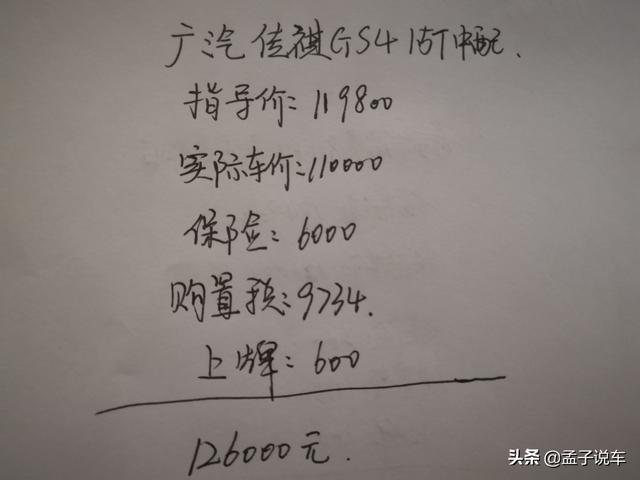 广汽传祺GS4 15T中配.
指导价：119800
实际车价：110000
保险：6000
购置税：9734.
上牌：600
126000元.
头条 @孟子说车